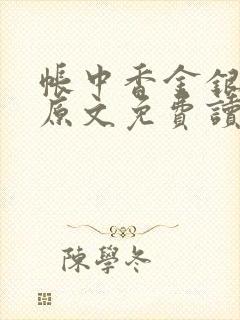 帳中香金銀
原文免費讀
陳學冬